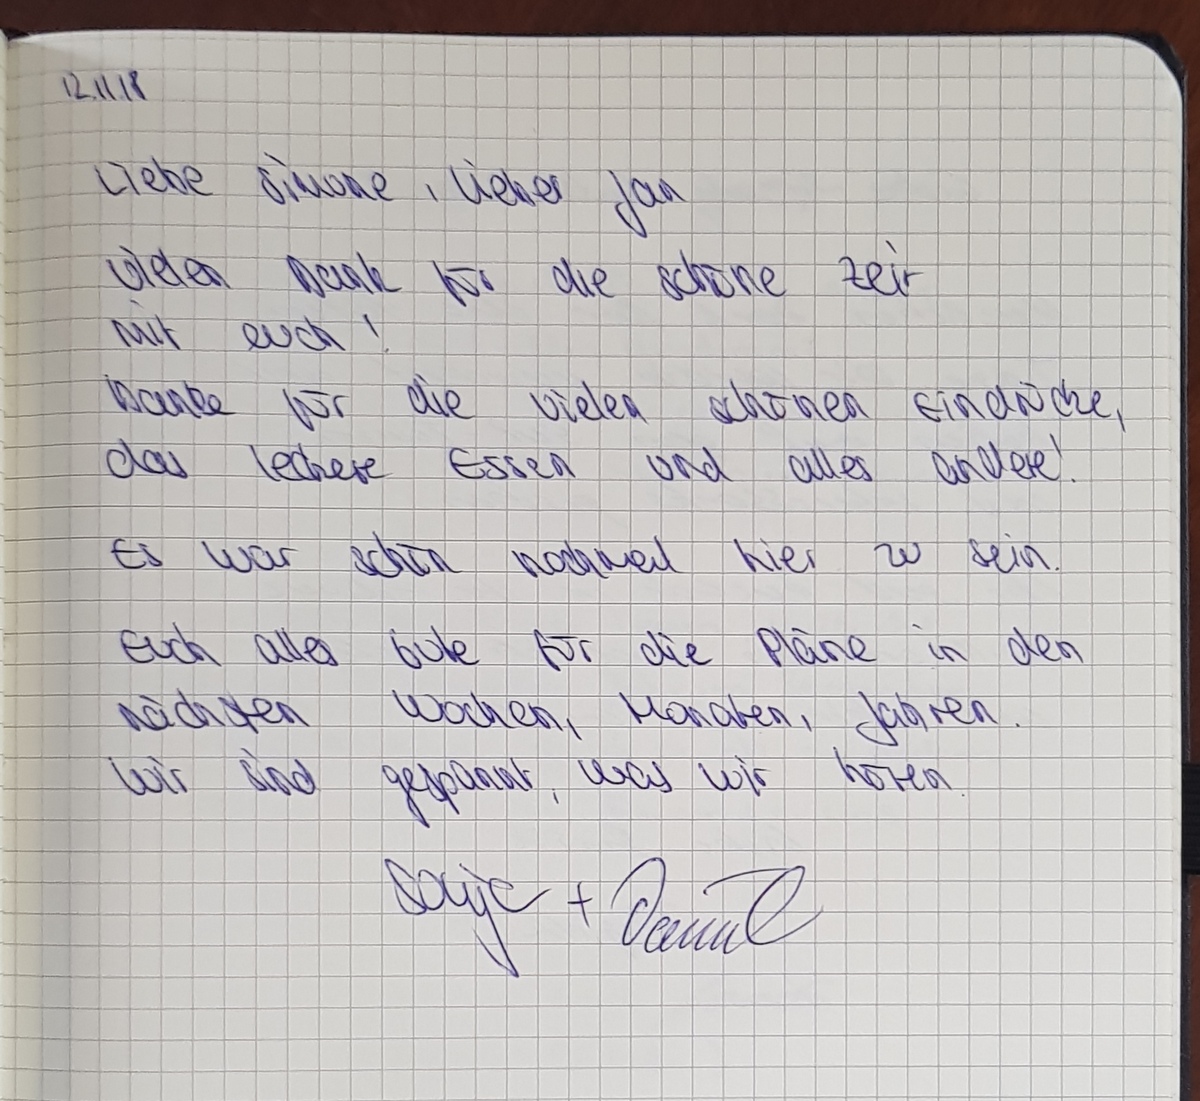 12.11.18
Liebe Simone, lieber Jan
vielen Dank für die schöne Zeit
mit euch!
Danke für die vielen schönen Eindrücke,
das leckere Essen und alles andere!
Es war schön nochmal hier zu sein.
Euch alles Gute für die Pläne in den
nächsten Wochen, Monaten, Jahren.
Wir sind gespannt, was wir hören.
+ Daniel